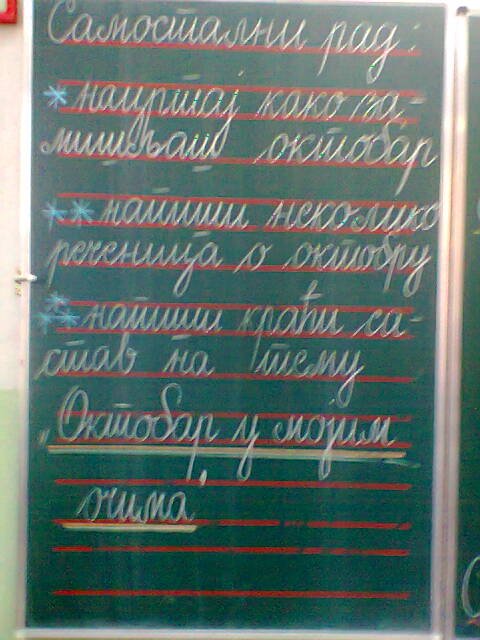 Самостални рад:
*нацртај како за-
мишљаш октобар
**напиши неколико
реченица о октобру
***напиши краћи са-
став на тему
„Октобар у мојим
очима“